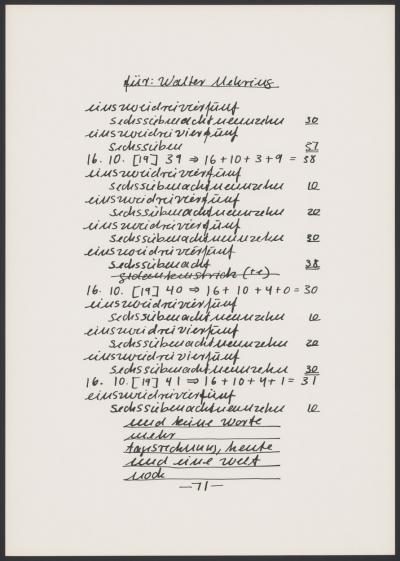 für: Walter Mehring
einszweidreivierfünf
sechssiebenachtneunzehn 30
einszweidreivierfünf
sechssieben 37
16. 10. [19] 39 ⇒ 16+10+3+9 = 38
einszweidreivierfünf
sechssiebenachtneunzehn 10
einszweidreivierfünf
sechssiebenachtneunzehn 20
einszweidreivierfünf
sechssiebenachtneunzehn 30
einszweidreivierfünf
sechssiebenacht 38
gedankenstrich
16. 10. [19] 40 ⇒ 16+10+4+0 = 30
einszweidreivierfünf
sechssiebenachtneunzehn 10
einszweidreivierfünf
sechssiebenachtneunzehn 20
einszweidreivierfünf
sechssiebenachtneunzehn 30
16. 10. [19] 41 ⇒ 16+10+4+1 = 31
einszweidreivierfünf
sechssiebenachtneunzehn 10
und keine worte
mehr
tagsrechnung, heute
und eine welt
noch
—71—